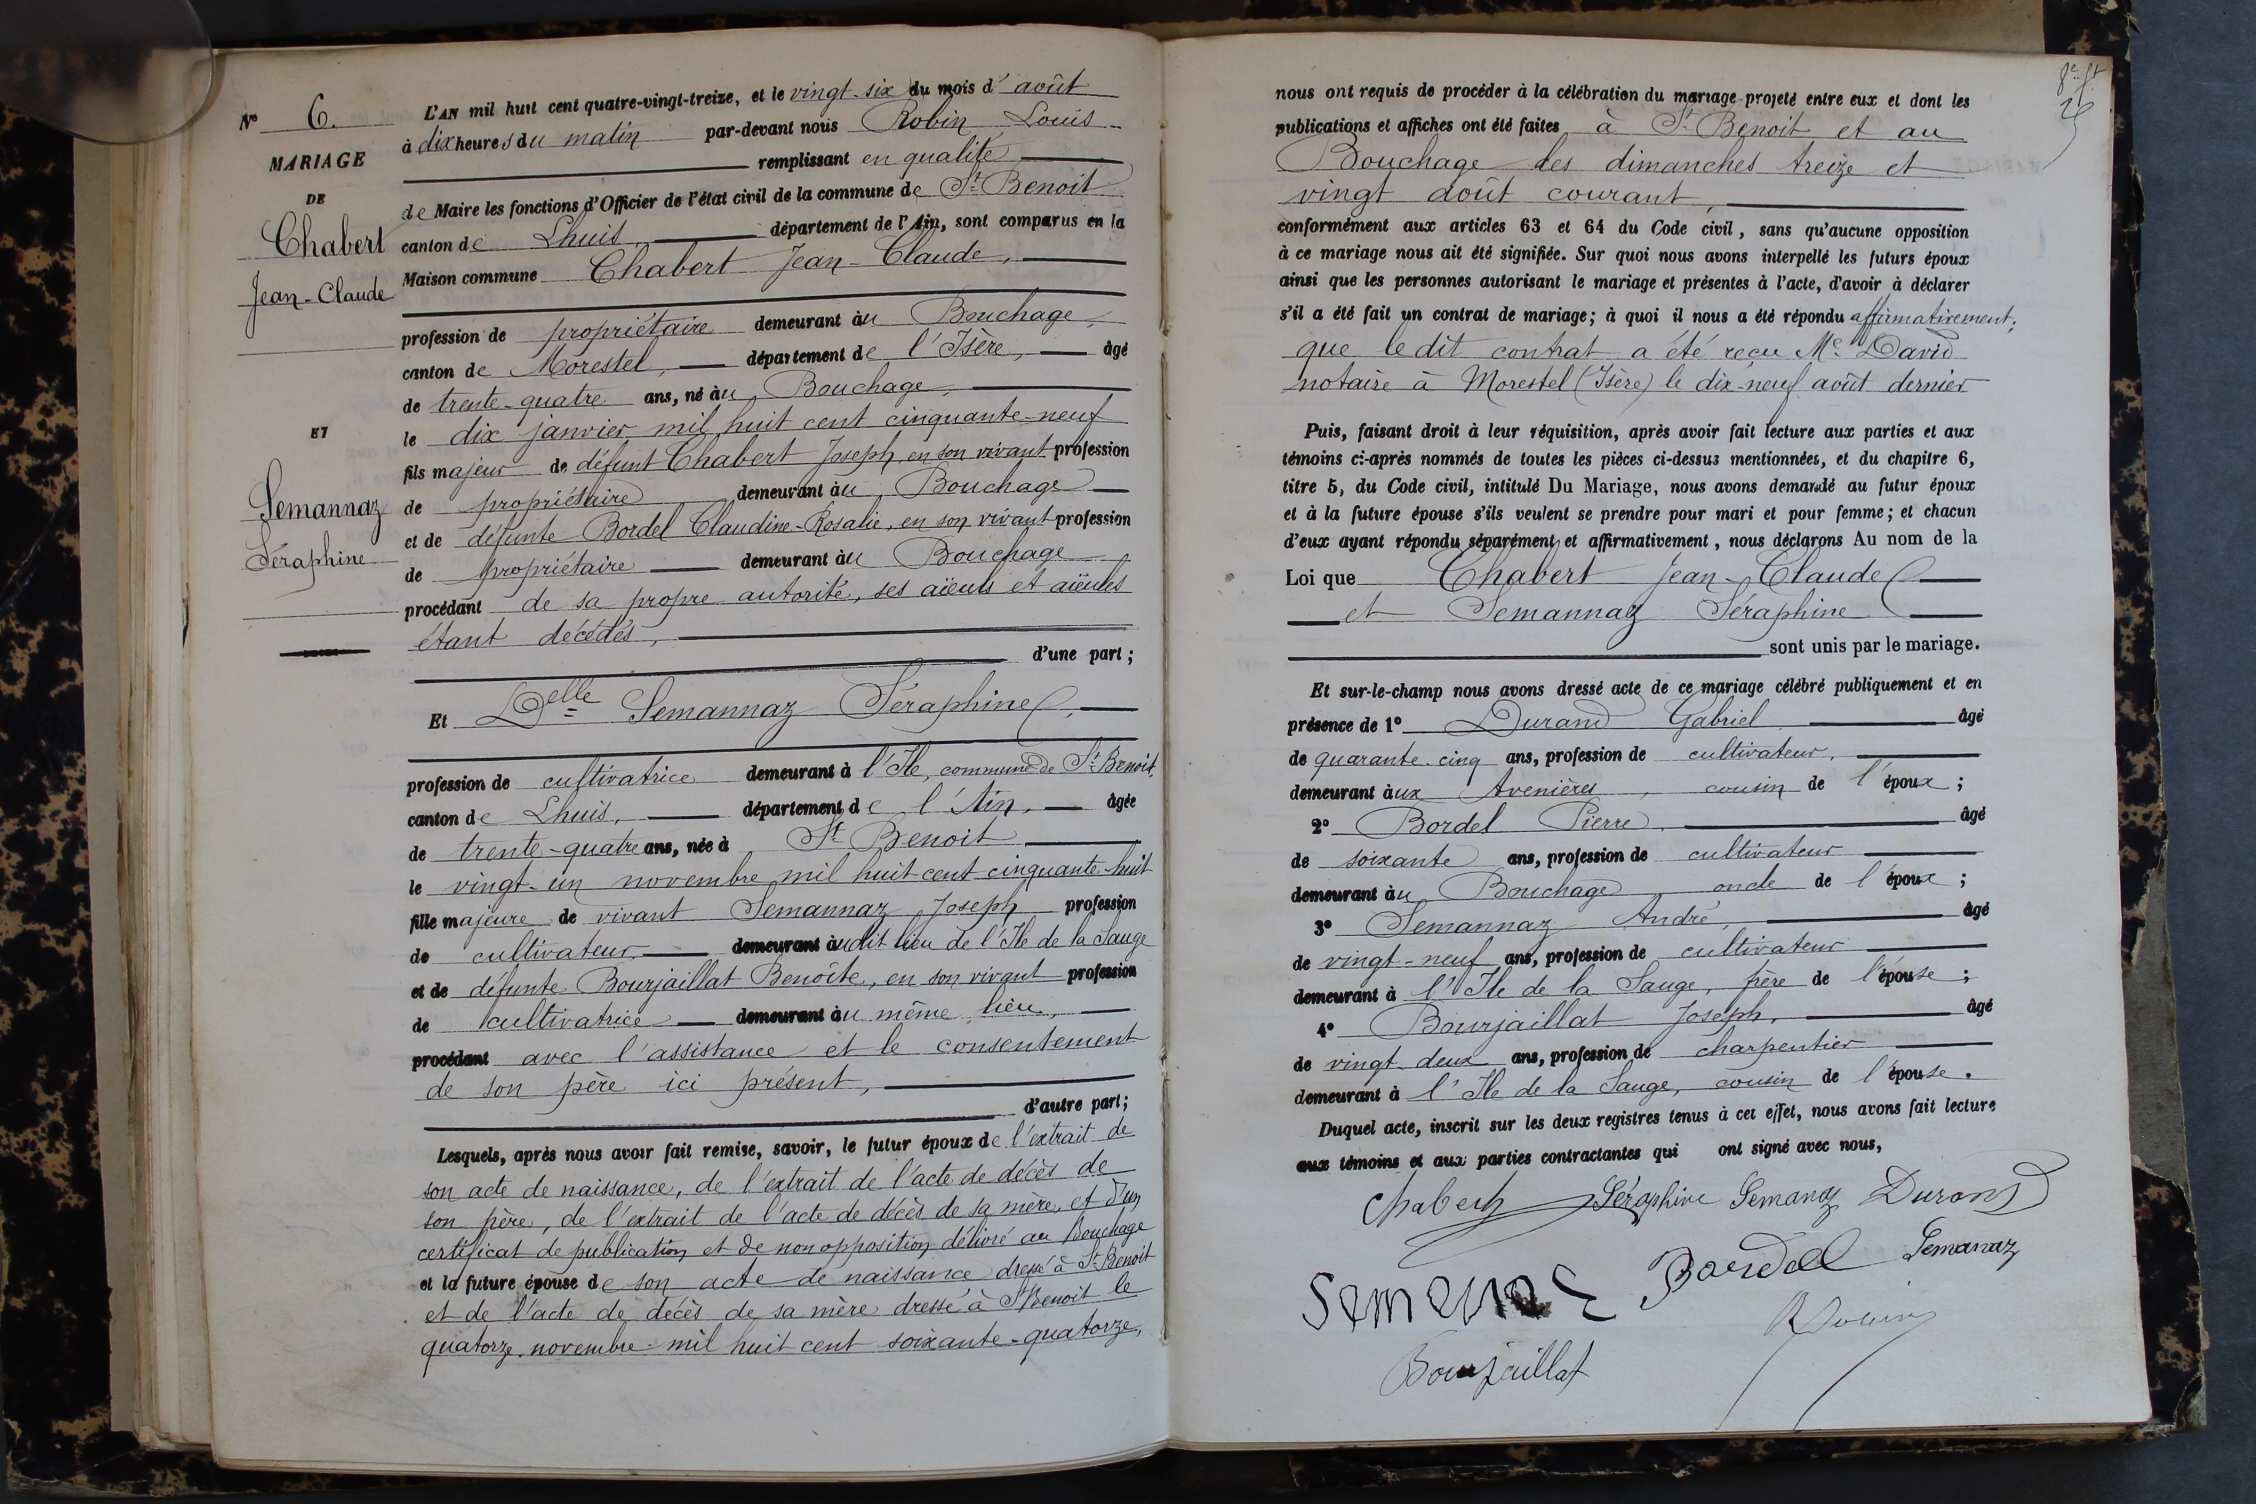 N° 6.
MARIAGE
DE
Chabert
Jean-Claude
ET
Semannaz
Séraphine
L'AN mil huit cent quatre-vingt-treize, et le vingt-six du mois d'août
à dix heures du matin par-devant nous Robin Louis
remplissant en qualité
de Maire les fonctions d'Officier de l'état civil de la commune de St Benoit
canton de Lhuis, département de l'Ain, sont comparus en la
Maison commune Chabert Jean-Claude,
profession de propriétaire demeurant au Bouchage,
canton de Morestel, département de l'Isère, âgé
de trente-quatre ans, né au Bouchage,
le dix janvier mil huit cent cinquante-neuf
fils majeur de défunt Chabert Joseph, en son vivant profession
de propriétaire demeurant au Bouchage
et de défunte Bordel Claudine-Rosalie, en son vivant profession
de propriétaire demeurant au Bouchage
procédant de sa propre autorité, ses aïeuls et aïeules
étant décédés,
d'une part;
Et Delle Semannaz Séraphine,
profession de cultivatrice demeurant à l'Ile, commune de St Benoit,
canton de Lhuis, département de l'Ain, âgée
de trente-quatre ans, née à St Benoit
le vingt-un novembre mil huit cent cinquante-huit
fille majeure de vivant Semannaz Joseph profession
de cultivateur demeurant audit lieu de l'Ile de la Sauge
et de défunte Bourjaillat Benoîte, en son vivant profession
de cultivatrice demeurant au même lieu,
procédant avec l'assistance et le consentement
de son père ici présent,
d'autre part;
Lesquels, après nous avoir fait remise, savoir, le futur époux de l'extrait de
son acte de naissance, de l'extrait de l'acte de décès de
son père, de l'extrait de l'acte de décès de sa mère, et d'un
certificat de publication et de non opposition délivré au Bouchage
et la future épouse de son acte de naissance dressé à St Benoit
et de l'acte de décès de sa mère dressé à St Benoit le
quatorze novembre mil huit cent soixante-quatorze,
8e ft
nous ont requis de procéder à la célébration du mariage projeté entre eux et dont les
publications et affiches ont été faites à St Benoit et au
Bouchage les dimanches treize et
vingt août courant,
conformément aux articles 63 et 64 du Code civil, sans qu'aucune opposition
à ce mariage nous ait été signifiée. Sur quoi nous avons interpellé les futurs époux
ainsi que les personnes autorisant le mariage et présentes à l'acte, d'avoir à déclarer
s'il a été fait un contrat de mariage; à quoi il nous a été répondu affirmativement;
que le dit contrat a été reçu Me David
notaire à Morestel (Isère) le dix-neuf août dernier
Puis, faisant droit à leur réquisition, après avoir fait lecture aux parties et aux
témoins ci-après nommés de toutes les pièces ci-dessus mentionnées, et du chapitre 6,
titre 5, du Code civil, intitulé Du Mariage, nous avons demandé au futur époux
et à la future épouse s'ils veulent se prendre pour mari et pour femme; et chacun
d'eux ayant répondu séparément et affirmativement, nous déclarons Au nom de la
Loi que Chabert Jean-Claude
et Semannaz Séraphine
sont unis par le mariage.
Et sur-le-champ nous avons dressé acte de ce mariage célébré publiquement et en
présence de 1° Durand Gabriel âgé
de quarante-cinq ans, profession de cultivateur,
demeurant aux Avenières, cousin de l'époux;
2° Bordel Pierre, âgé
de soixante ans, profession de cultivateur
demeurant au Bouchage oncle de l'époux;
3° Semannaz André, âgé
de vingt-neuf ans, profession de cultivateur
demeurant à l'Ile de la Sauge, frère de l'épouse;
4° Bourjaillat Joseph, âgé
de vingt-deux ans, profession de charpentier
demeurant à l'Ile de la Sauge, cousin de l'épouse.
Duquel acte, inscrit sur les deux registres tenus à cet effet, nous avons fait lecture
aux témoins et aux parties contractantes qui ont signé avec nous,
Chabert Séraphine Semanaz Durand
Bordel Semanaz
Robin
Bourjaillat